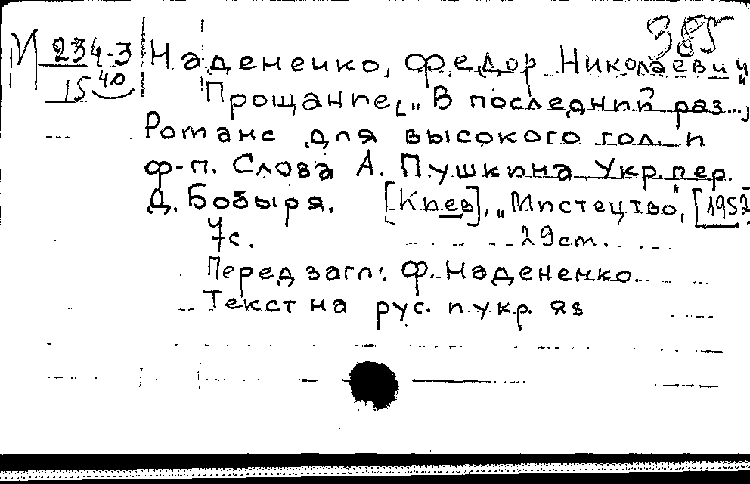 385
М 234-3 Надененко, Федор Николаевич
15 40
Прощание [„В последний раз...„
Романс для высокого гол. и
ф-п. Слова А. Пушкина Укр. пер.
Д. Бобыря. [Киев], „Мистецтво", [195
7с. 29см.
Перед загл.: Ф. Надененко
Текст на рус. и укр. яз